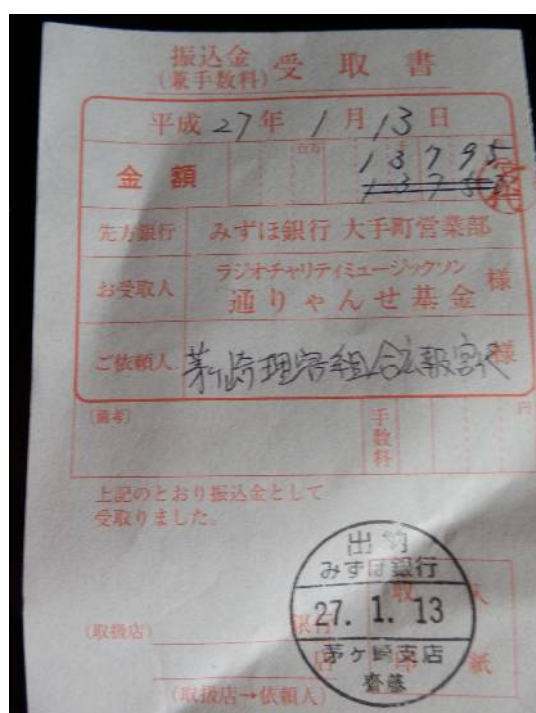 振込金
(兼手数料) 受取書
平成 27年 1月 13日
百万
13795
金額
先方銀行 みずほ銀行 大手町営業部
お受取人 ラジオチャリティミュージックソン
通りゃんせ基金 様
ご依頼人 茅ヶ崎理容組合広報宮代 様
(備考)
手数料
円
上記のとおり振込金として
受取りました。
出納
みずほ銀行
27. 1. 13
茅ヶ崎支店
齋藤
収 入
印 紙
(取扱店)
銀行
店
(取扱店→依頼人)